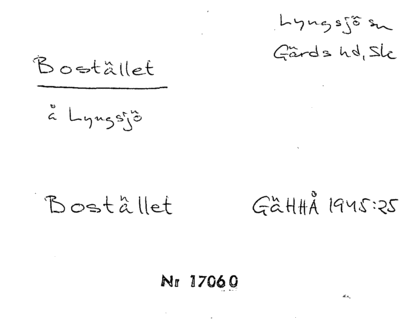 Lyngsjö sn
Gärds hd, Sk
Bostället
å Lyngsjö
Bostället
GäHHÅ 1945:25
Nr 17060